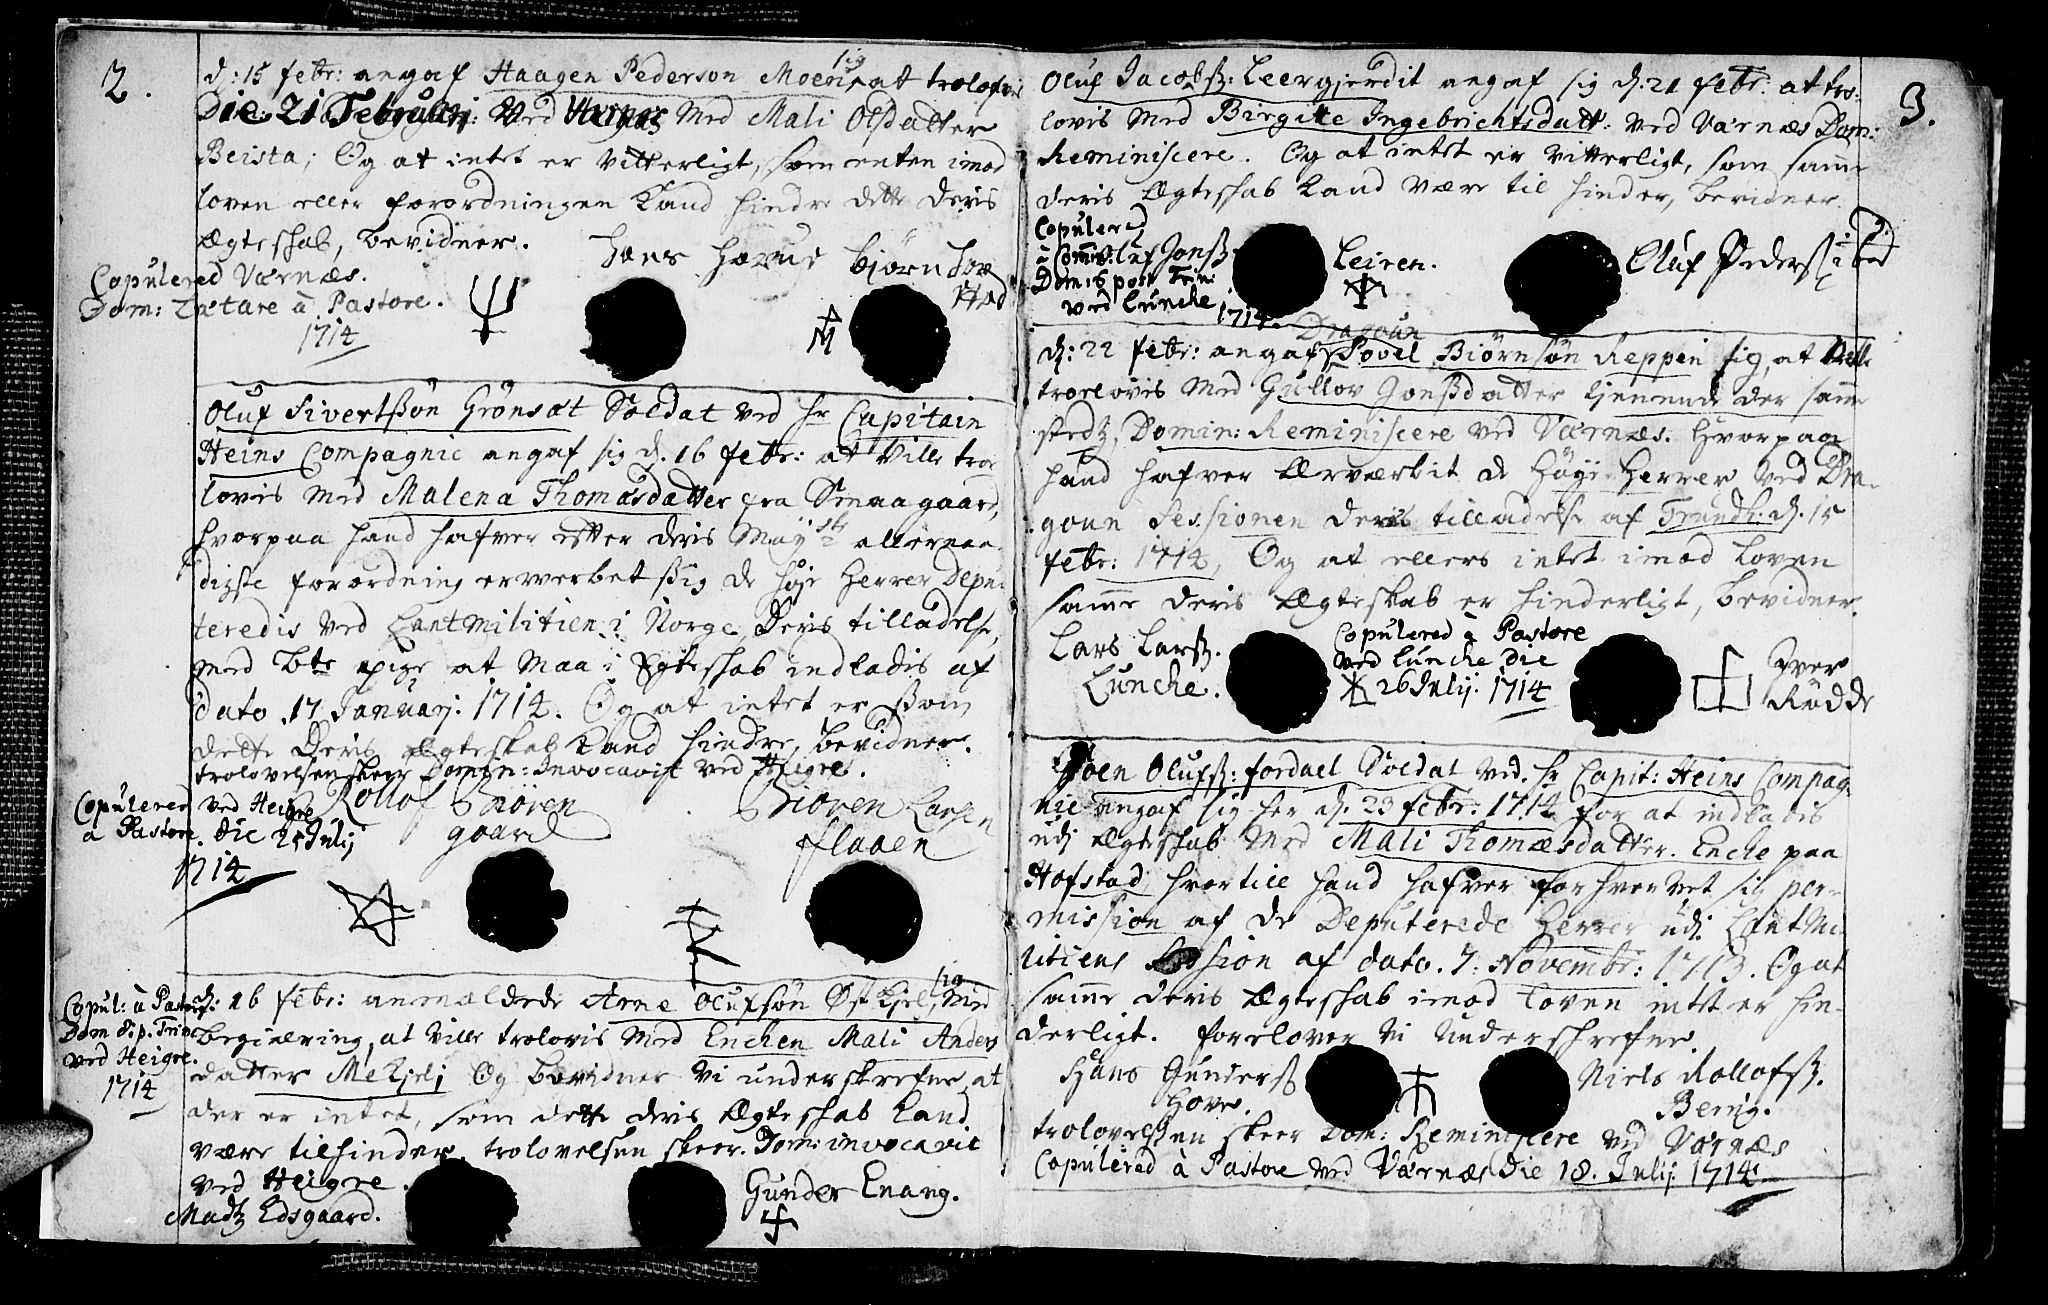 2.
d: 15 febr: angaf Haagen Pederson Moen sig at trolofvis
Die: 21 Februarij: Ved Værnæs Med Mali Olsdatter
Beista; Og at intet er vitterligt, som enten imod
loven eller forordningen kand hindre dette deris
Ægteskab, bevidner.
Copulered Værnæs.
Dom: Lætare à Pastore.
1714
Oluf Sivertsön Grönsæt Soldat ved hr Capitain
Heins Compagnie angaf sig d. 16 febr: at ville troe
lovis med Malena Thomæsdatter fra Smaagaard,
hvorpaa hand hafver efter deris Mayst allernaa
digste forordning erwerbet ssig de höje Herrer Depu
teredis ved Lantmilitien i Norge, Deris tilladelse,
med bte pige at maa i Egteskab indladis af
dato .17 Januarj: 1714. Og at intet er ssom
dette Deris Ægteskab kand hindre, bevidner.
trolovelsen skeer Domin: Invocavit ved Heigre.
Copulered ved Heigre
à Pastore. die 25 Julij
1714
Rollof Biören
gaard
Biören Larsen
flaaen
Copul: à Pastore
Dom 8 p. Trin:
ved Heigre.
1714
d: 16 febr: anmældede Arne Olufsön Östkjel sig, med
begiæring, at ville trolovis med Enchen Mali Anders
datter Mekjelj Og bevidner vi underskrefne, at
der er intet, som dette deris Ægteskab kand
være tilhinder. trolovelsen skeer. Dom: invocavit
ved Heigre.
Madtz Edsgaard.
Gunder Enang.
3.
Oluf Jacobss: Leergjerdit angaf sig d: 21 febr: at tro-
lovis med Birgitte Ingebrichtsdatt: ved Værnæs Dom:
Reminiscere. Og at intet er vitterligt, som samme
deris Ægteskab kand være til hinder, bevidner
Copulered
Dom: 6 post Trin:
ved Lunche
1714.
Oluf Jonss
Leiren.
Oluf Pederss ibed
d: 22 febr: angaf Dragoun Povel Biörnsön Reppen sig, at ville
troelovis med Gulløv Jonssdatter tjenende der samme
stedtz, Domin: Reminiscere ved Værnæs. Hvorpaa
hand hafver Erværbit de Höyje Herrer ved Dra-
goun Sessionen deris tilladelse af Trundh: d. 15
febr: 1714, Og at ellers intet imod loven
samme deris Ægteskab er hinderligt, bevidner.
Lars Larss.
Lunche.
Copulered à Pastore
ved Lunche die
26 Julij. 1714
Iver
Rødde
Joen Olufss: fordael Soldat ved. hr Capit: Heins Compag
nie angaf sig her d. 23 febr: 1714 for at indladis
udi Ægteskab med Mali Thomæsdatter. Enche paa
Hofstad hvortill hand hafver forhvervet sig per-
mission af de Deputerede Herrer udi Lantmi
litiens Session af dato. 7. Novembr: 1713. Og at
samme deris Ægteskab imod loven intet er hin-
derligt. forelover vi underschrefne.
Hans Gunderss
Hove.
Niels Rollofss.
Berrig.
trolovelsen skeer Dom: Reminiscere ved Værnæs
Copulered à Pastore ved Værnæs die 18. Julij 1714